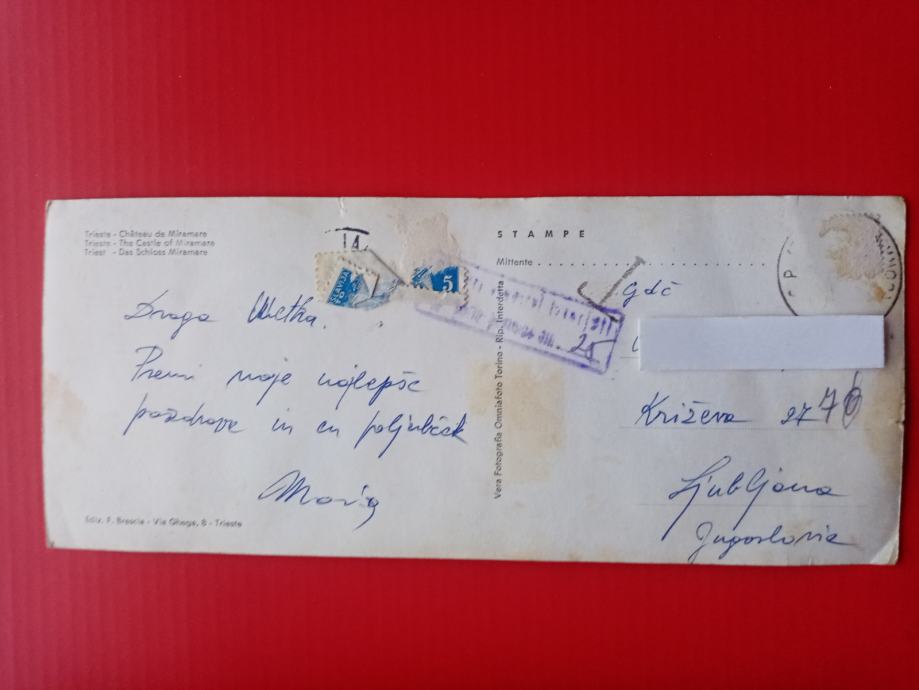 Trieste - Château de Miramare
Trieste - The Castle of Miramare
Triest - Das Schloss Miramare
Draga Metka.
Premi moje najlepše
pozdrave in en poljubček
Marija
Ediz. F. Brescia - Via Ghega, 8 - Trieste
SLAVIJA
5
Vera Fotografia Omniafoto Torino - Rip. Interdetta
STAMPE
Mittente
25
Gdč
Križeva
Ljubljana
Jugoslavia